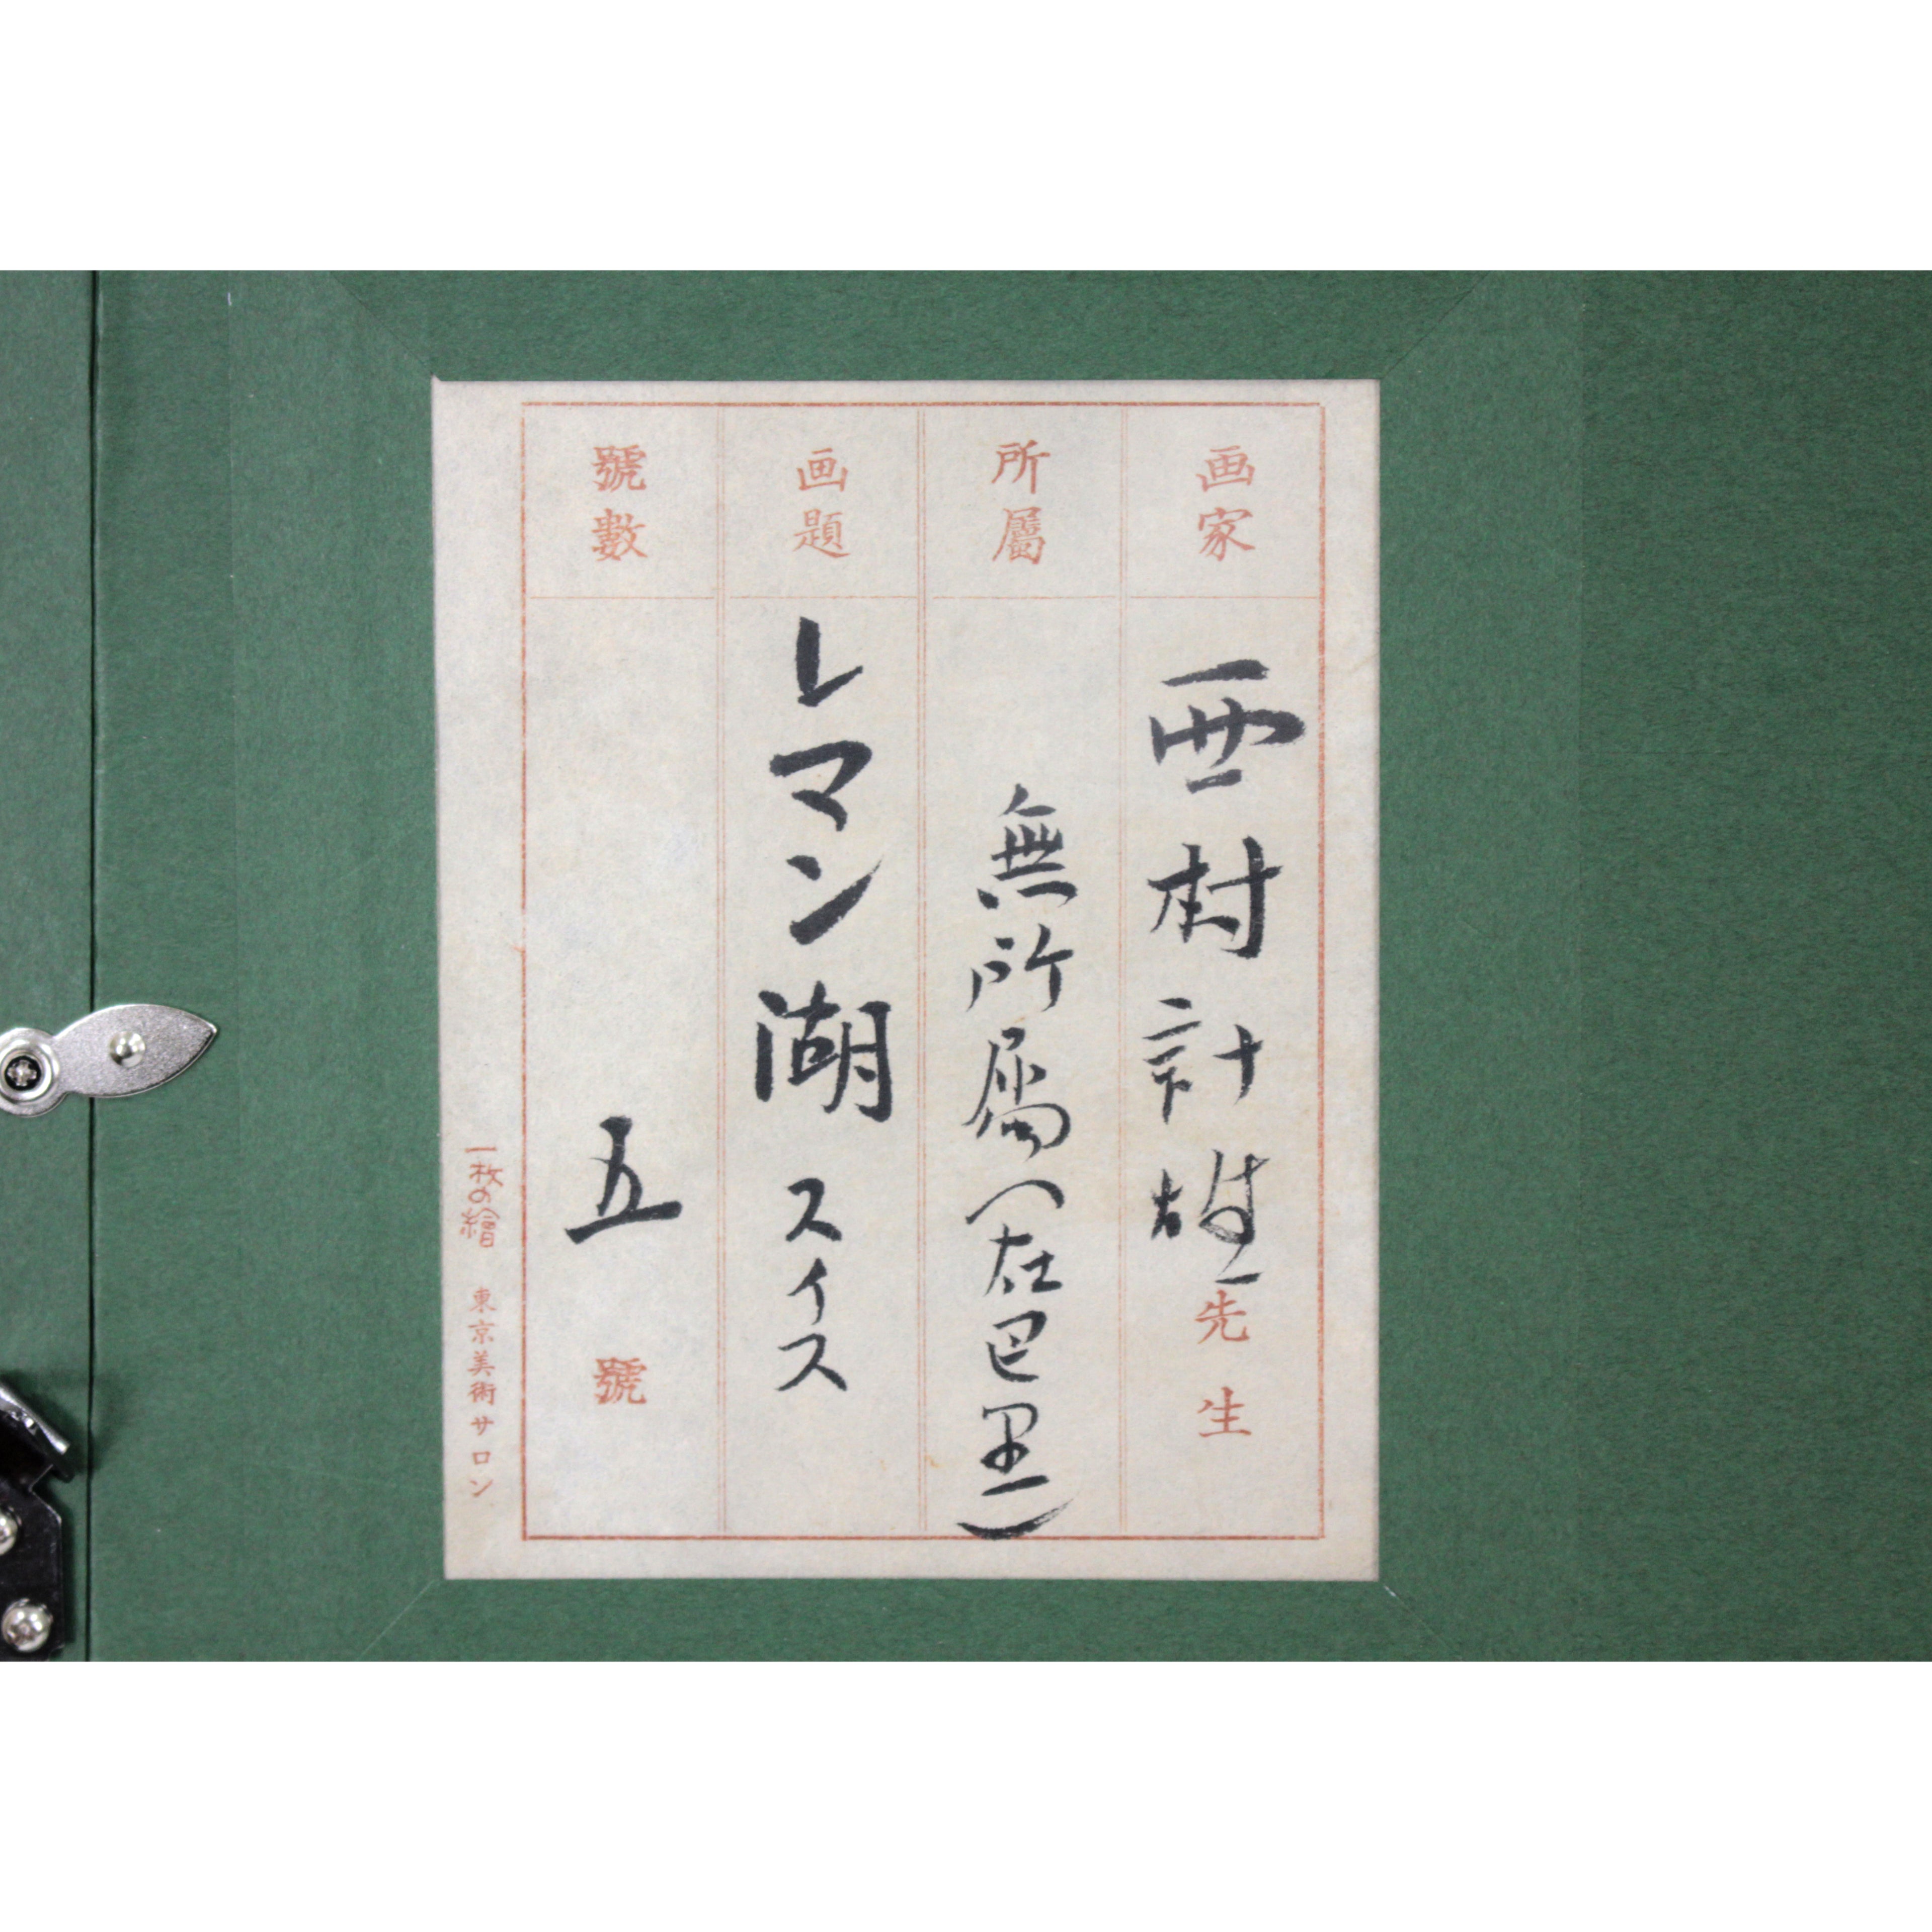 画家 西村計雄先生
所屬 無所属(在巴里)
画題 レマン湖 スイス
號數 五號
一枚の繪 東京美術サロン